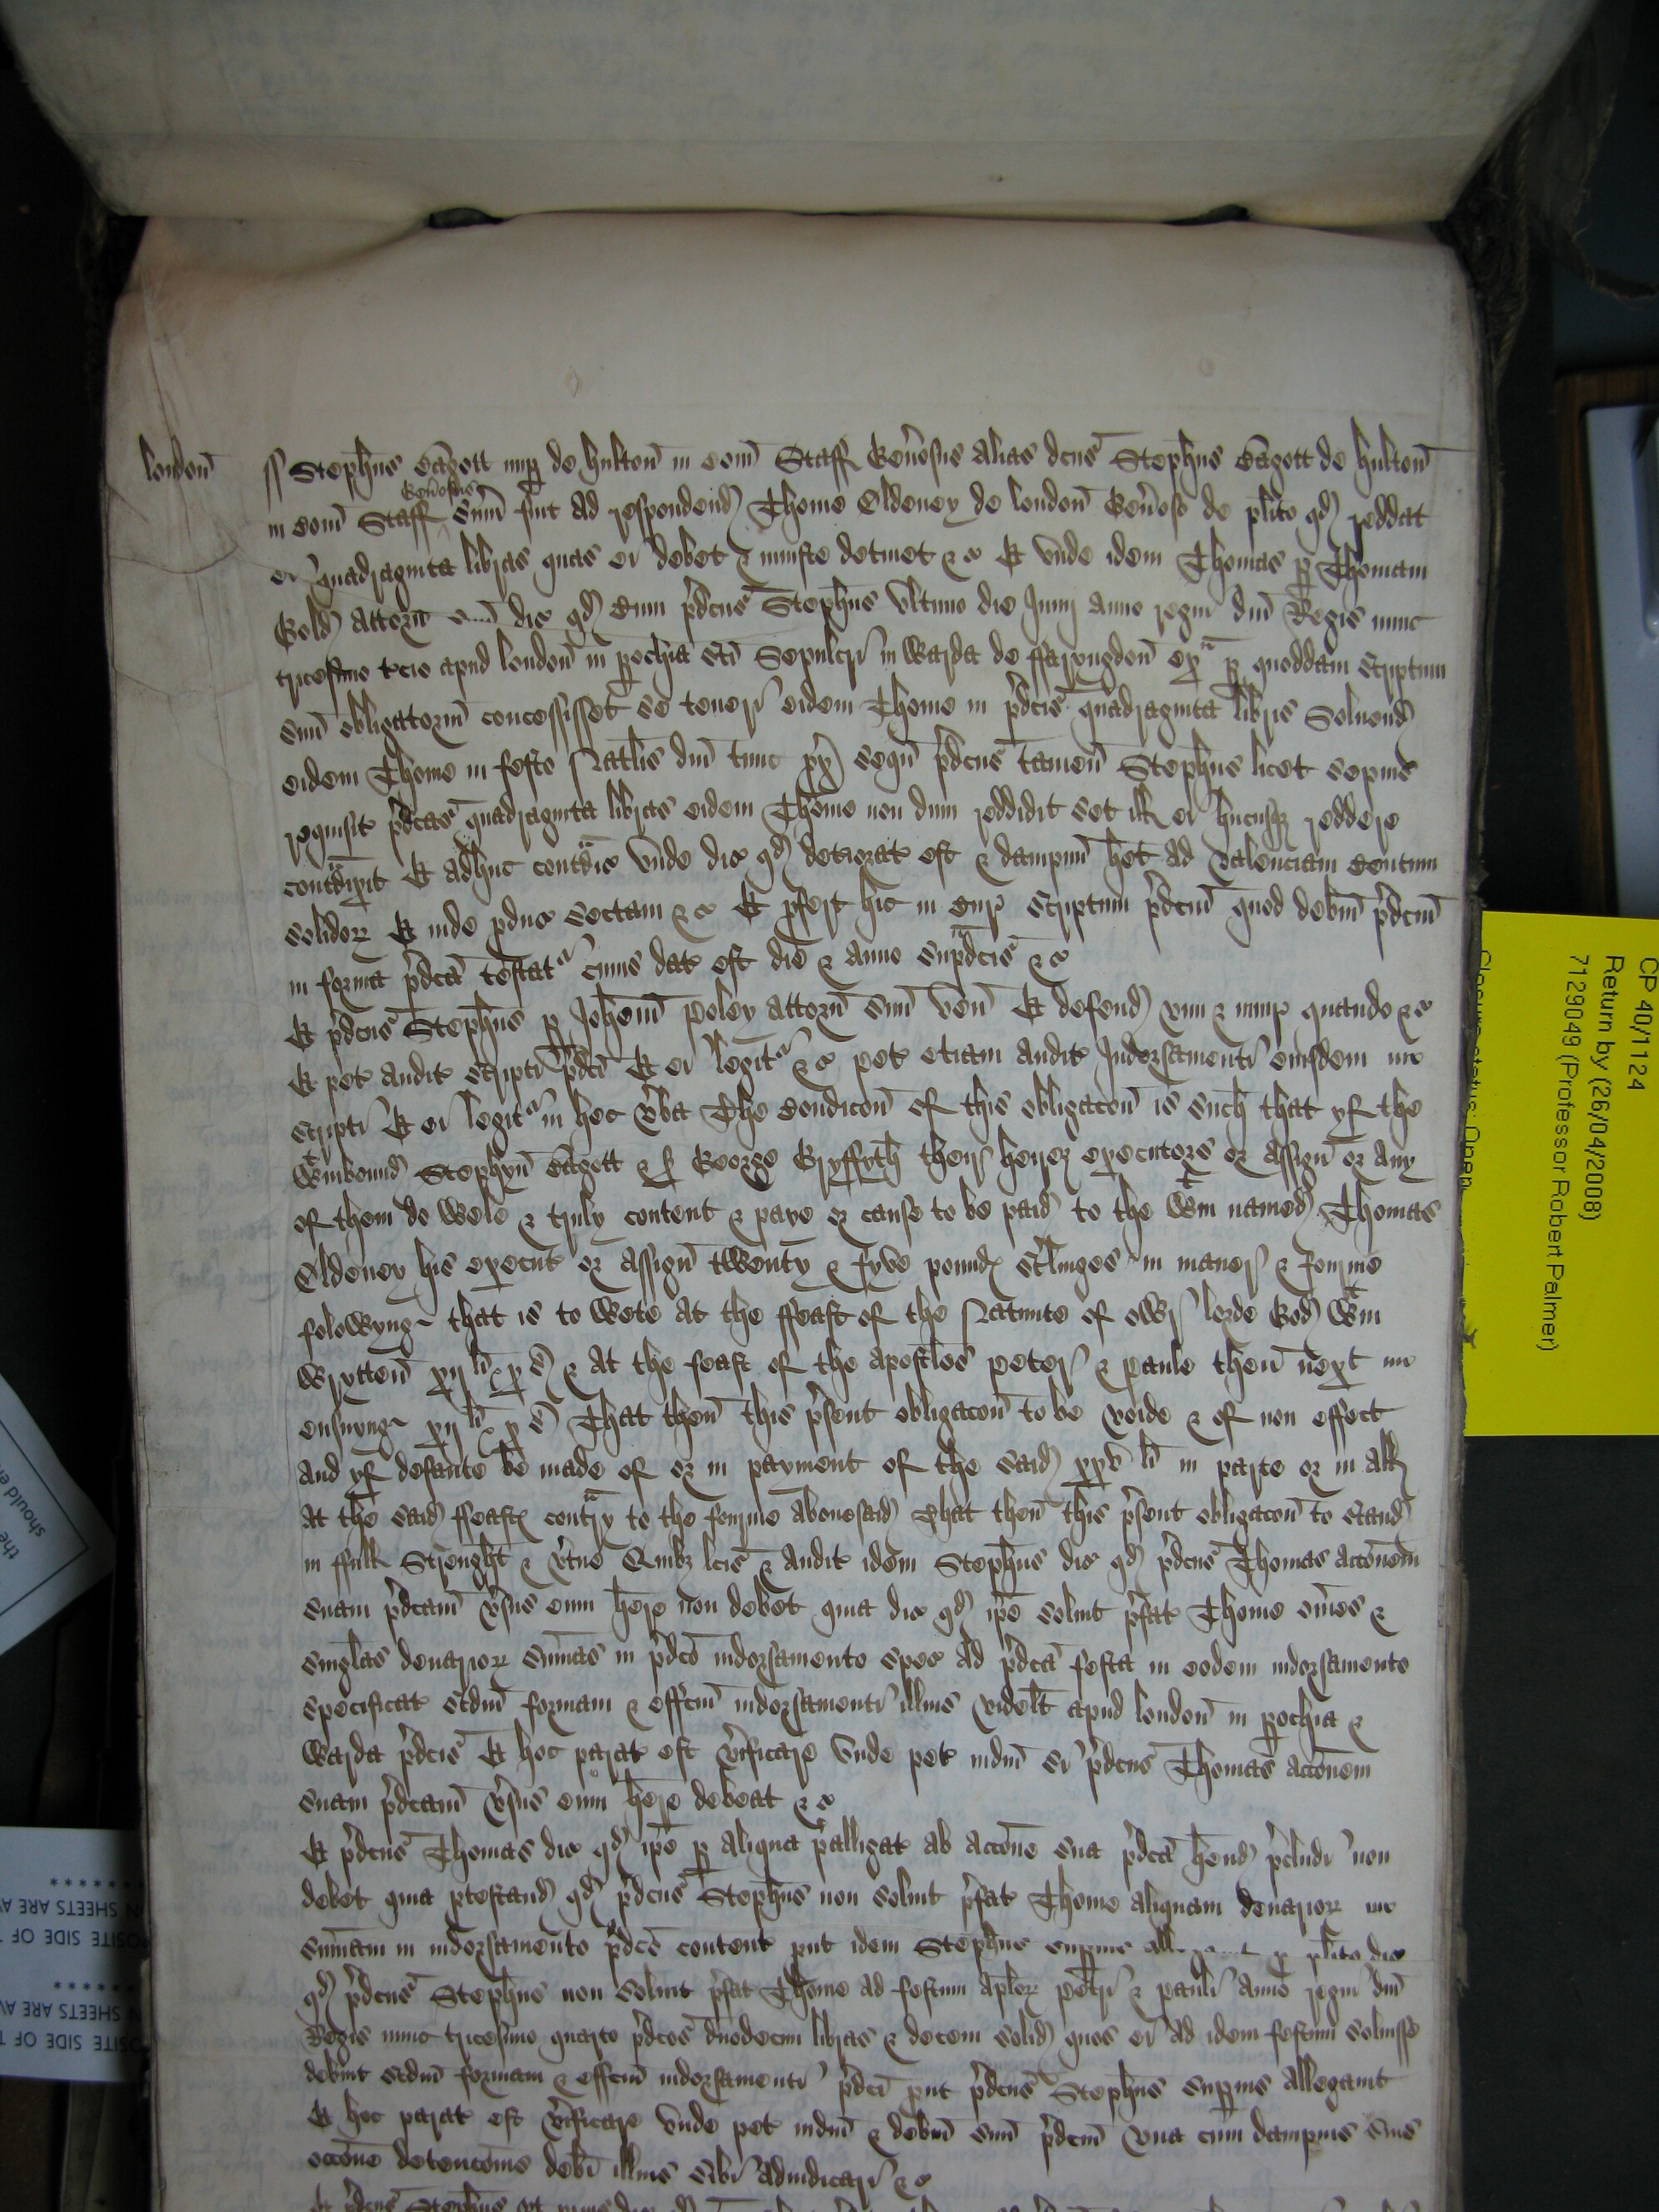 london
ss Stephus Bagott nup de hulton in Com Staff Genosus alias dcus Stephus Bagott de hulton
Genosus
in Com Staff sum fuit ad respondend Thome Oldeney de london Genoso de plito qd reddat
ei quadraginta libras quas ei debet & iniuste detinet &c Et unde idem Thomas p Thomam
Gold attorn suu dic qd cum pdcus Stephus ultimo die Junij anno regni dni Regis nunc
tricesimo tcio apud london in pochia sci Sepulcri in Warda de ffaryngdon ext p quoddam scriptum
suu obligatoriu concessisset se teneri eidem Thome in pdcis quadraginta libris Soluend
eidem Thome in festo Natlis dni tunc px sequ pdcus tamen Stephus licet sepius
requisit pdcas quadraginta libras eidem Thome non dum reddidit set ill ei hucusq reddere
contradixit Et adhuc contradic unde dic qd deteriorat est & dampnu het ad valenciam Centum
solidor Et inde pduc sectam &c Et pfert hic in Cur scriptum pdcm quod debm pdcm
in forma pdca testat cuius dat est die & anno supdcis &c
Et pdcus Stephus p Johem Poley attorn suu ven Et defend vim & iniur quando &c
Et pet audit scripti pdci Et ei legit &c pet etiam audit Indorsamenti eiusdem
scripti Et ei legit in hec vba The Condicon of this obligacon is such that yf the
wtinbound Stephyn Bagott & S George Gryffyth theyr heyrez executors or assign or any
of them do Wele & truly content & paye or cause to be paid to the wtin named Thomas
Oldeney his execut or assign twenty & fyve pound stlinges in maner & fourme
folowyng that is to wete at the ffeast of the Natiuite of owr lorde God wtin
Wrytten xij li x s & at the feast of the apostles peter & paule then next
ensuyng xij li x s That then this psent obligacon to be voide & of non effect
And yf defaute be made of or in payment of the said xxv li in parte or in all
at the said ffeast contry to the fourme abouesaid That then this psent obligacon to stand
in ffull Strenght & vtue Quibz lcis & audit idem Stephus dic qd pdcus Thomas accionem
suam pdcam vsus eum here non debet quia dic qd ipe soluit pfat Thome omes &
singlas denarior summas in pdco indorsamento spec ad pdca festa in eodem indorsamento
specificat scdm formam & effcm indorsamenti illius videlt apud london in pochia &
Warda pdcis Et hoc parat est vificare unde pet iudm si pdcus Thomas accionem
suam pdcam vsus eum here debeat &c
Et pdcus Thomas dic qd ipe p aliqua pallegat ab accone sua pdca hend pcludi non
debet quia ptestand qd pdcus Stephus non soluit pfat Thome aliquam denarior
summam in indorsamento pdco content put idem Stephus supius p plito dic
qd pdcus Stephus non soluit pfat Thome ad festum aplor petri & pauli anno regni dni
Regis nunc tricesimo quarto pdcos duodecim libras & decem solid quos ei ad idem festum soluisse
debuit scdm formam & effcm indorsamenti pdci put pdcus Stephus supius allegauit
Et hoc parat est vificare unde pet iudm & debm suu pdcm una cum dampnis suis
occone detencionis debi illius sibi adiudicari &c
CP 40/1124
Return by (26/04/2008)
7129049 (Professor Robert Palmer)
Closure status: Open